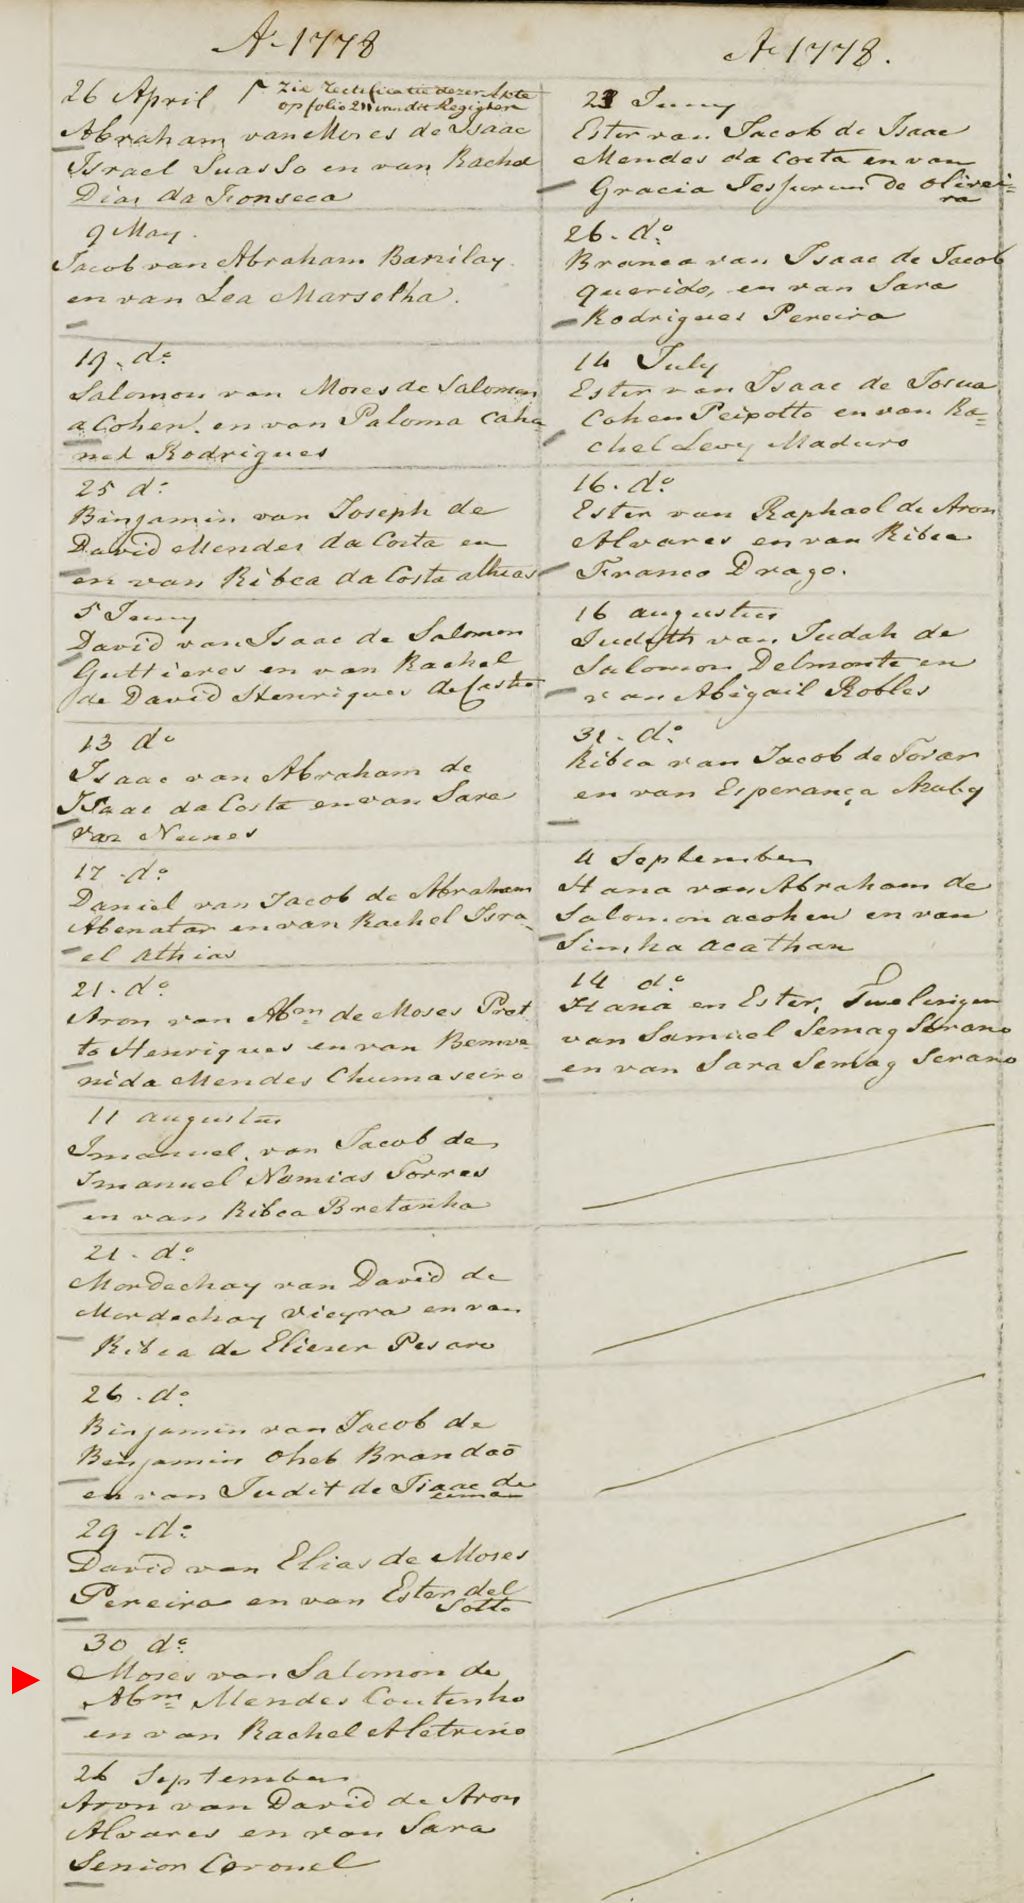 A. 1778
26 April Zie Rectificatie dezer Akte
op folio 211 van dit Register
Abraham van Moses de Isaac
Israel Suasso en van Rachel
Dias da Fonseca
9 May.
Jacob van Abraham Barzilay
en van Lea Marselha.
19. do.
Salomon van Moses de Salomon
a Cohen. en van Paloma Caha-
net Rodrigues
25 do.
Binjamin van Joseph de
David Mendes da Costa en
en van Ribca da Costa athias
5 Juny
David van Isaac de Salomon
Guttieres en van Rachel
de David Henriques de Castro
13 do
Isaac van Abraham de
Isaac da Costa en van Sara
Vaz Nunes
17 do.
Daniel van Jacob de Abraham
Abenatar en van Rachel Isra-
el Athias
21. do.
Aron van Abm. de Moses Prat
to Henriques en van Bemve-
nida Mendes Chumaseiro
11 augustus
Imanuel. van Jacob de
Imanuel Namias Torres
en van Ribca Bretanha
21. do.
Mordechay van David de
Mordechay Vieyra en van
Ribca de Elieser Pesaro
26. do.
Binjamin van Jacob de
Benjamin Oheb Brandaõ
en van Judit de Isaac de
29. do.
David van Elias de Moses
Pereira en van Ester del
Sotto
30 do.
Moses van Salomon de
Abm. Mendes Coutinho
en van Rachel Aletrino
26 September
Aron van David de Aron
Alvares en van Sara
Senior Coronel
A. 1778.
23 Juny
Ester van Jacob de Isaac
Mendes da Costa en van
Gracia Jessurun de Olivei-
ra
26. do.
Branca van Isaac de Jacob
Querido, en van Sara
Rodrigues Pereira
14 July
Ester van Isaac de Josua
Cohen Peixotto en van Ra-
chel Levy Maduro
16. do.
Ester van Raphael de Aron
Alvares en van Ribca
Franco Drago.
16 augustus
Judith van Judah de
Salomon Delmonte en
van Abigail Robles
31. do.
Ribca van Jacob de Tovar
en van Esperança Akuby
4 September
Hana van Abraham de
Salomon acohen en van
Simha acathan
14 do.
Hana en Ester, Tweelingen
van Samuel Semag Serano
en van Sara Semag Serano